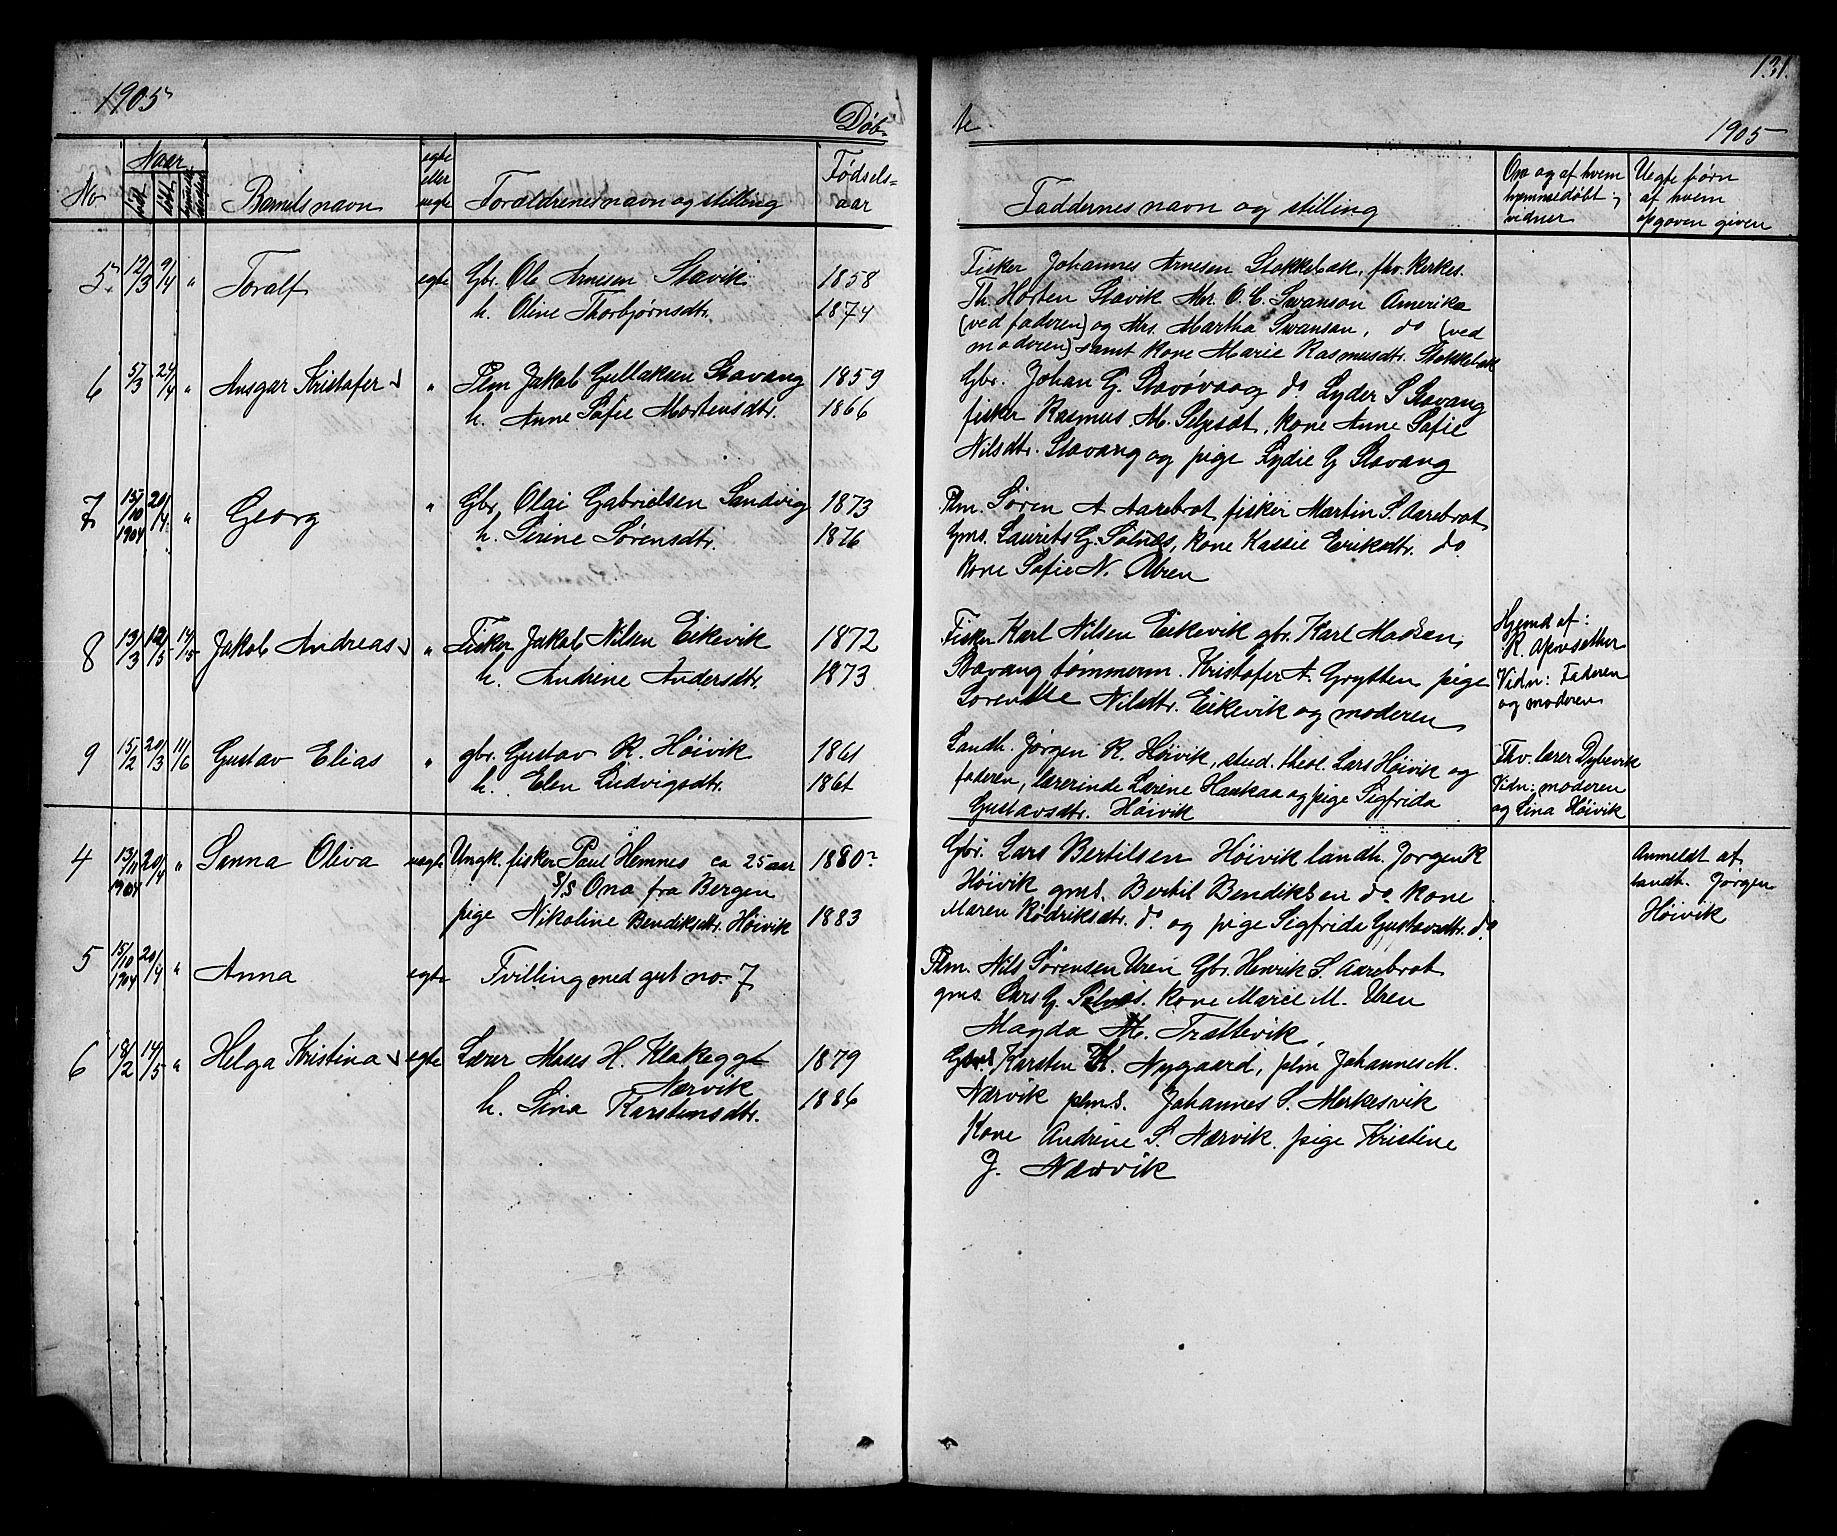 1905
Døb
No
Naar
født
døbt
Barnets navn
egte eller uegte
Forældrenes navn og stilling
Fødsels-aar
5 12/3 9/4 " Toralf egte Gbr. Ole Arnesen Stavik 1858
h. Oline Thorbjørnsdtr. 1874
6 5/3 24/4 " Ansgar Kristofer " Plm Jakob Gullaksen Stavang 1859
h. Anne Sofie Mortensdtr. 1866
7 15/10 1904 20/4 " Georg " Gbr. Olai Gabrielsen Sandvig 1873
h. Serine Sørensdtr. 1876
8 13/3 12/5 14/5 Jakob Andreas " Fisker Jakob Nilsen Eikevik 1872
h. Andrine Andersdtr. 1873
9 15/2 20/3 11/6 Gustav Elias " gbr. Gustav R. Høivik 1861
h. Elen Ludvigsdtr. 1861
4 13/11 1904 20/4 " Sanna Oliva uegte Ungk. fisker Paul Hemnes ca 25 aar 1880?
S/S Ona fra Bergen
pige Nikoline Bendiksdtr. Høivik 1883
5 15/10 1904 20/4 " Anna egte Tvilling med gut no. 7
6 18/2 14/5 " Helga Kristina egte Lærer Moses H. Klakeggt 1879
Nærvik
h. Sina Karstensdtr. 1886
131.
te
1905
Faddernes navn og stilling
Om og af hvem hjemmedøbt; vidner
Uegte børn af hvem opgaven given
Fisker Johannes Arnesen Stokkebæk, fhv. kirkes.
Th. Horten Stavik Mr. O. C. Swanson Amerika
(ved faderen) og Mrs. Martha Swanson, do (ved
moderen) samt kone Marie Rasmusdtr. Stokkebæk
Gbr. Johan G. Stavøvaag do Lyder S Stavang
fisker Rasmus M. kone Anne Sofie
Nilsdtr. Stavang og pige Lydie G Stavang
Plm. Søren A Aarebrot fisker Martin S. Aarebrot
Gms. Laurits G. Solnes, kone Kassie Eriksdtr. do
kone Sofie N. Uren
Fisker Karl Nilsen Eikevik gbr. Karl Madsen
Stavang tømmerm. Kristofer A. Grytten pige
Lorentse Nilsdtr. Eikevik og moderen
Hjemd af:
R.
Vidn: Faderen
og moderen
Landh. Jørgen R. Høivik, stud. theol. Lars Høivik og
faderen, lærerinde Lærine Haukaa og pige Sigfrida
Gustavsdtr. Høivik
Fhv. lærer Dybevik
Vidn: moderen
og Lina Høivik
Gbr. Lars Bertilsen Høivik landh. Jørgen R
Høivik gms. Bertil Bendiksen do kone
Maren Rödriksdtr. do og pige Sigfrida Gustavsdtr. do
Anmeldt af
landh. Jørgen
Høivik
Plm. Nils Sørensen Uren Gbr. Henrik S. Aarebrot
gms. Lars G. Solnes. kone Marie M. Uren
Magda M. Trættevik
Gbrs Karsten K. Nygaard, plm Johannes M.
Nærvik plms. Johannes S. Merkesvik
Kone Andrine S. Nærvik. pige Kristine
J. Nærvik